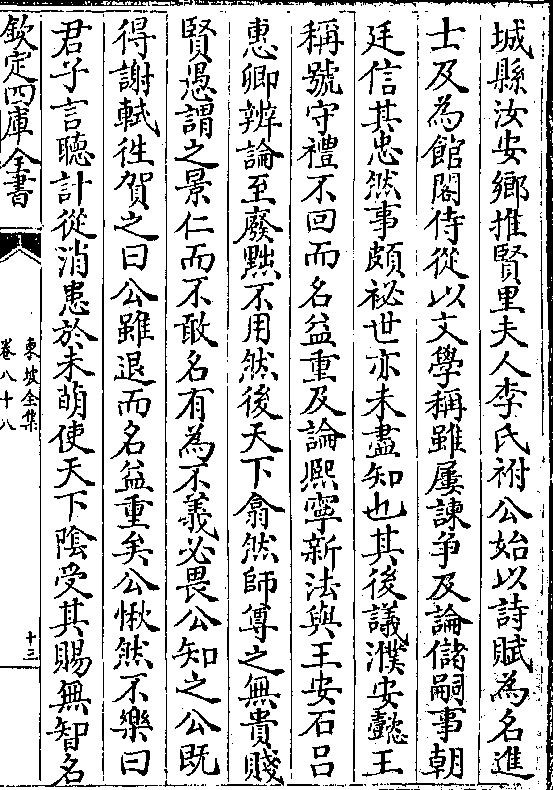 城縣汝安鄉推賢里夫人李氏祔公始以詩賦為名進
士及為館閣侍從以文學稱雖屢諫爭及論儲嗣事朝
廷信其忠然事頗祕世亦未盡知也其後議濮安懿王
稱號守禮不回而名益重及論熙寧新法與王安石呂
惠卿辨論至廢黜不用然後天下翕然師尊之無貴賤
賢愚謂之景仁而不敢名有為不義必畏公知之公既
得謝軾往賀之曰公雖退而名益重矣公愀然不樂曰
君子言聽計從消患於未萌使天下陰受其賜無智名
欽定四庫全書
東坡全集
卷八十八
十三